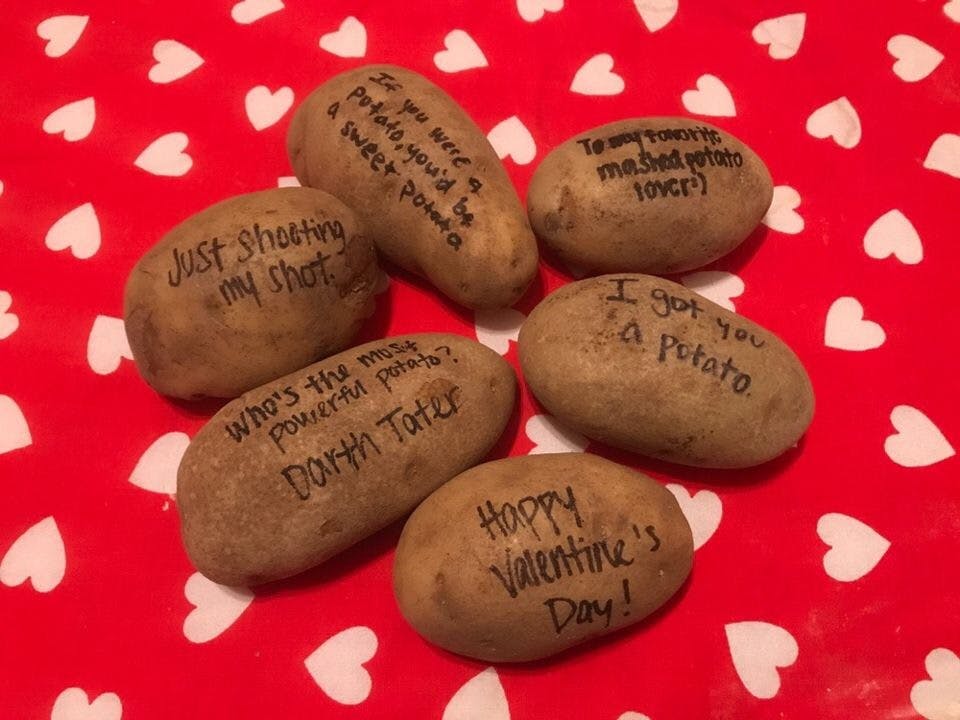 If you were a
potato, you'd be
a sweet potato
To my favorite
mashed potato
lover:)
Just shooting
my shot.
I got you
a potato.
Who's the most
powerful potato?
Darth Tater
Happy
Valentine's
Day!